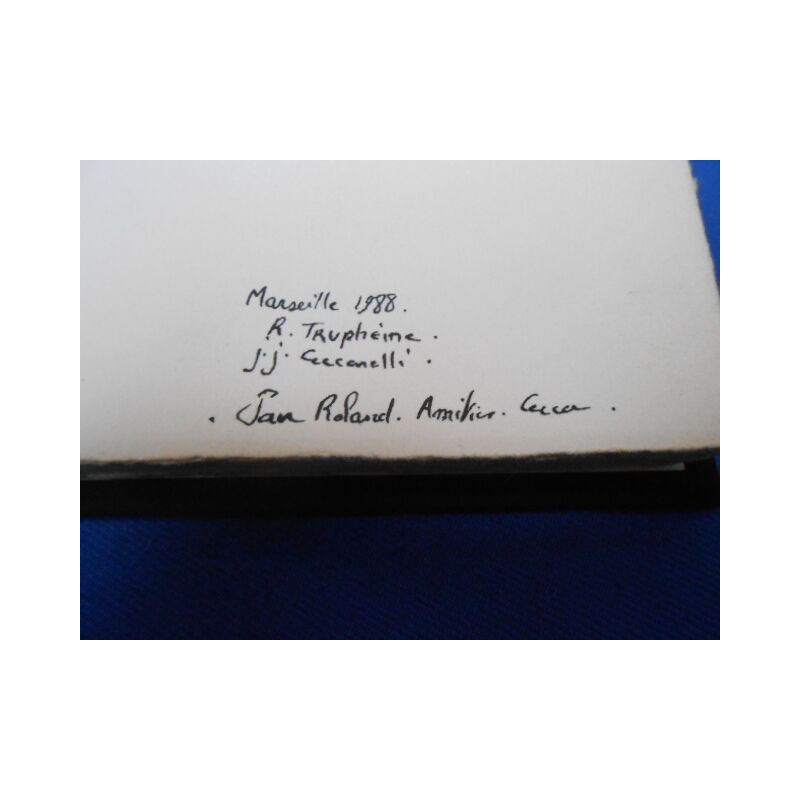 Marseille 1988.
R. Truphème.
J.J. Ceccarelli.
. Roland. Amitiés. Cecca .